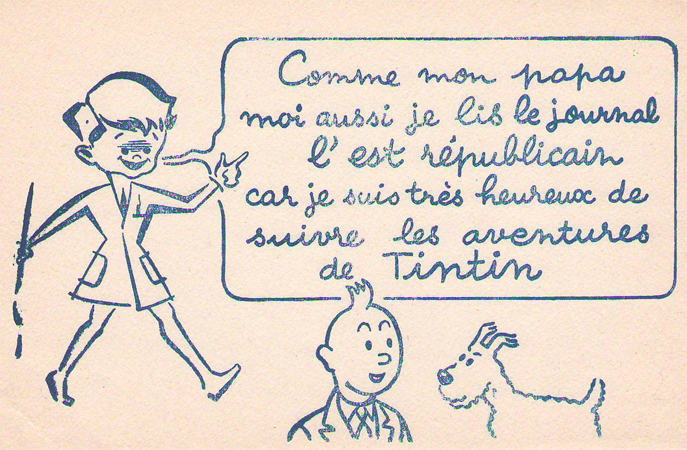 Comme mon papa
moi aussi je lis le journal
l'est républicain
car je suis très heureux de
suivre les aventures
de Tintin